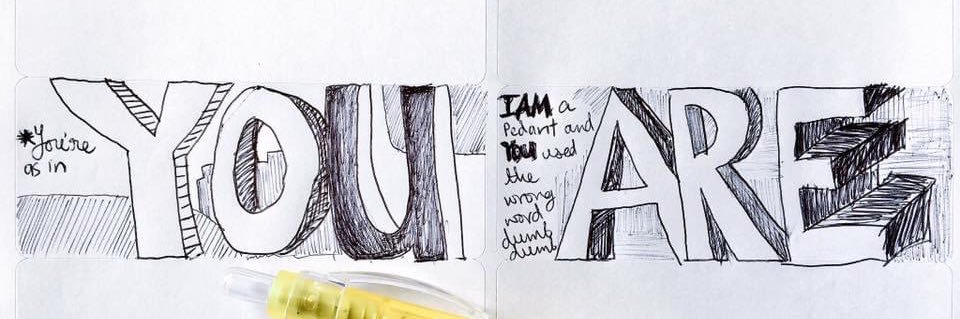 *You're
as in
YOU
I AM a
Pedant and
YOU used
the
wrong
word
dumb
dumb
ARE